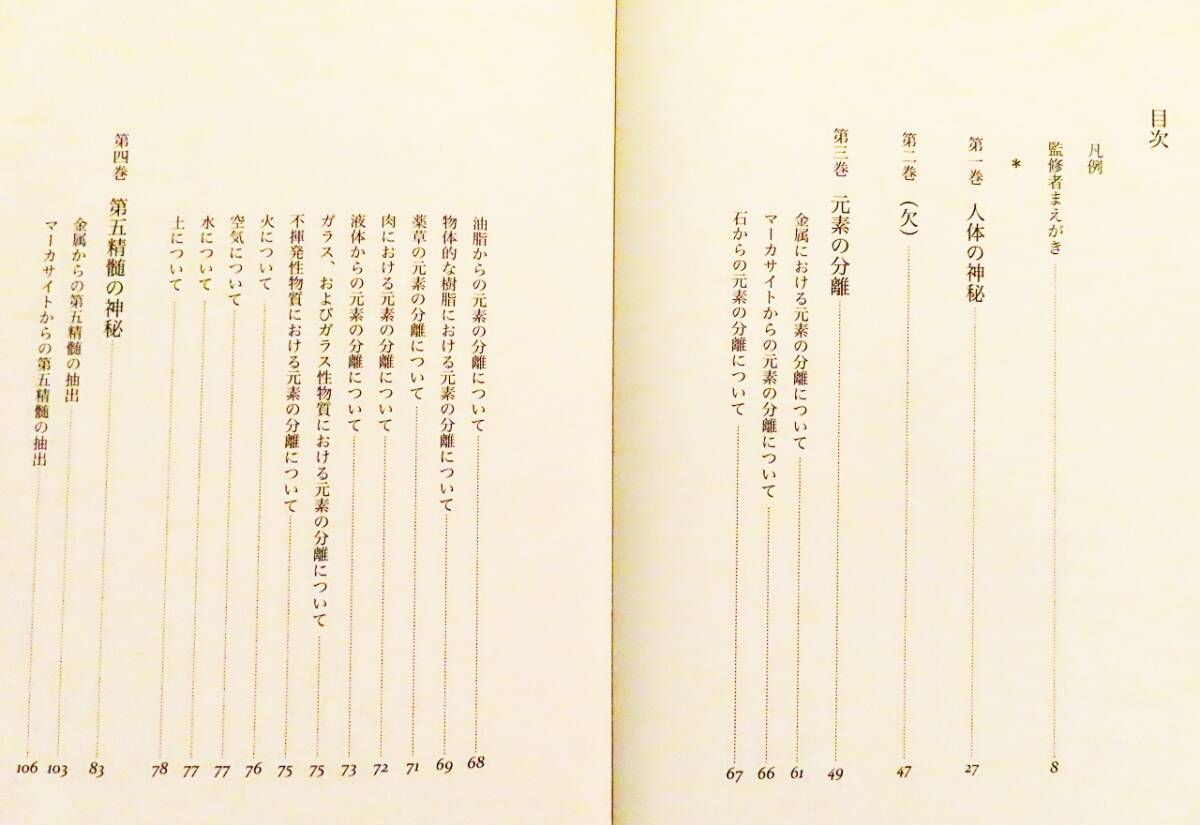 目次
凡例
監修者まえがき 8
*
第一巻 人体の神秘 27
第二巻 (欠) 47
第三巻 元素の分離 49
金属における元素の分離について 61
マーカサイトからの元素の分離について 66
石からの元素の分離について 67
油脂からの元素の分離について 68
物体的な樹脂における元素の分離について 69
薬草の元素の分離について 71
肉における元素の分離について 72
液体からの元素の分離について 73
ガラス、およびガラス性物質における元素の分離について 75
不揮発性物質における元素の分離について 75
火について 76
空気について 77
水について 77
土について 78
第四巻 第五精髄の神秘 83
金属からの第五精髄の抽出 103
マーカサイトからの第五精髄の抽出 106